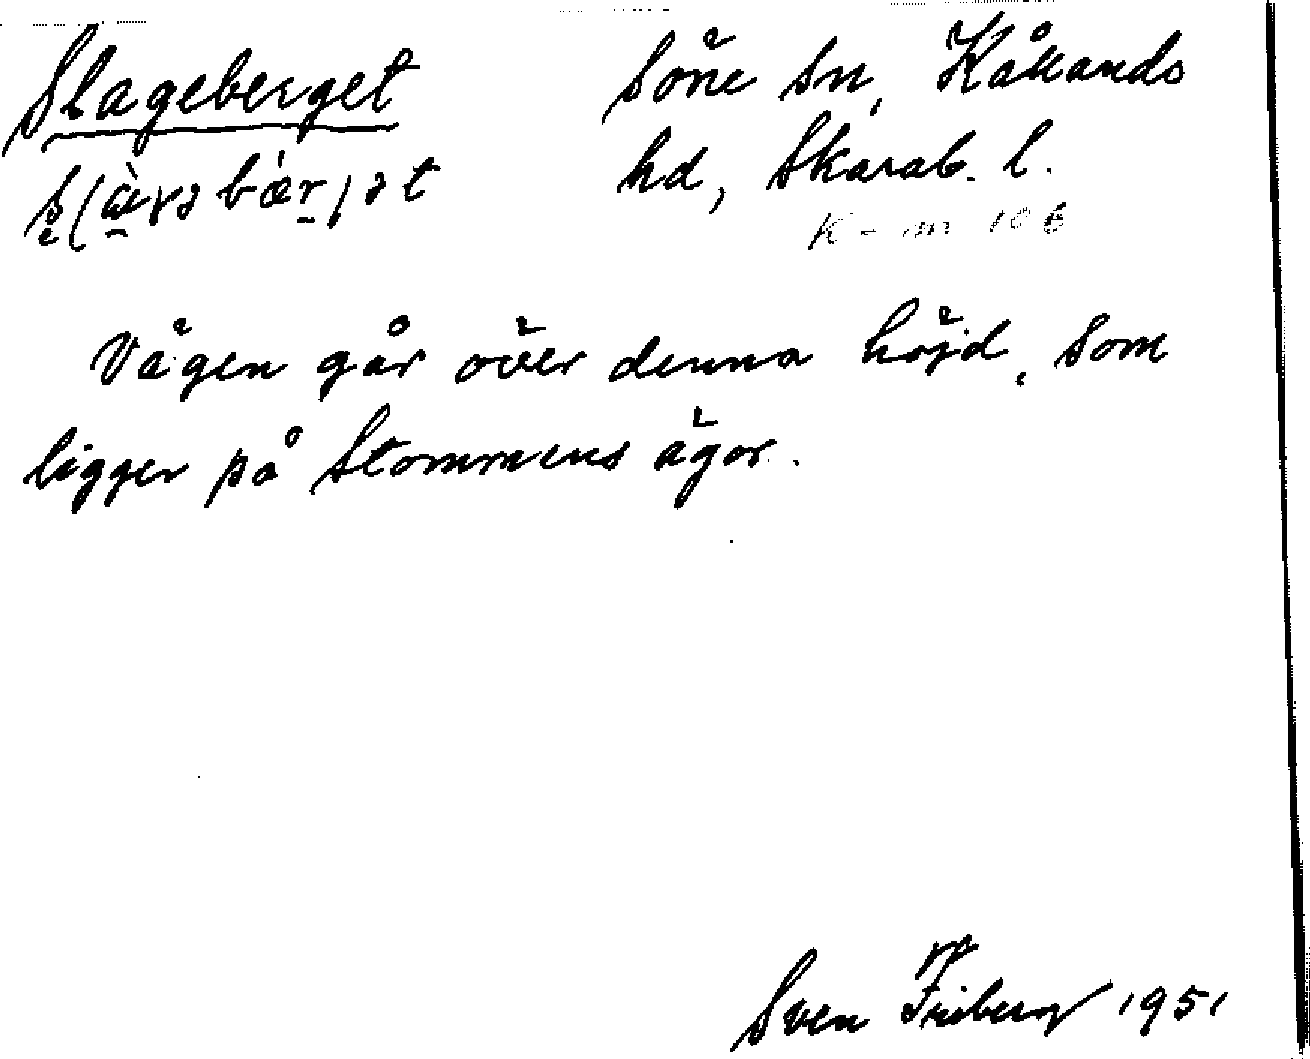 Slageberget
Söne sn, Kållands
hd, Skarab. l.
K-m 106
Vägen går över denna höjd, som
ligger på Stommens ägor.
Sven Friberg 1951